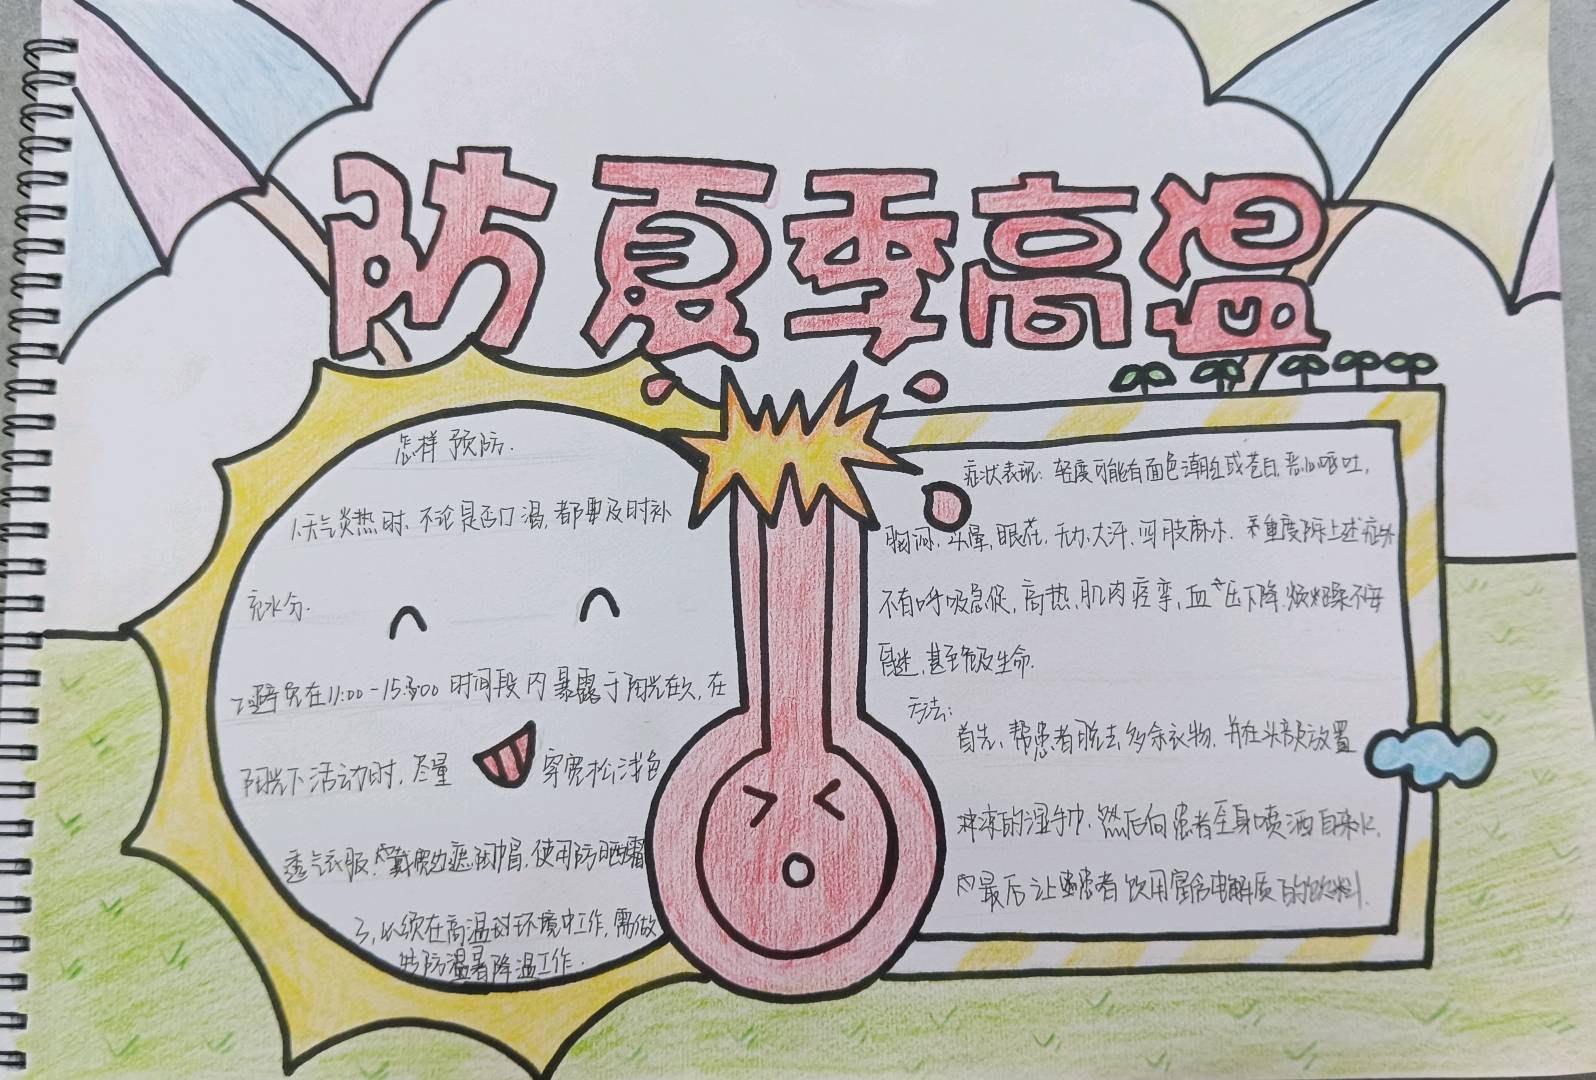 防夏季高温
怎样预防.
1.天气炎热时,不论是否口渴,都要及时补
充水分.
2.避免在11:00-15:00时间段内暴露于阳光在久,在
阳光下活动时,尽量穿宽松浅色
透气衣服.戴宽边遮阳帽.使用防晒霜
3,必须在高温环境中工作,需做
防暑降温工作.
症状表现:轻度可能有面色潮红或苍白,恶心呕吐,
胸闷,头晕,眼花,无力,大汗,四肢麻木.重度除上述症外
不有呼吸急促,高热,肌肉痉挛,血压下降.烦躁不安
昏迷,甚至危及生命.
方法:
首先,帮患者脱去多余衣物.并在头部放置
冰凉的湿手巾.然后向患者全身喷洒自来水,
最后让患者饮用富含电解质的饮料.